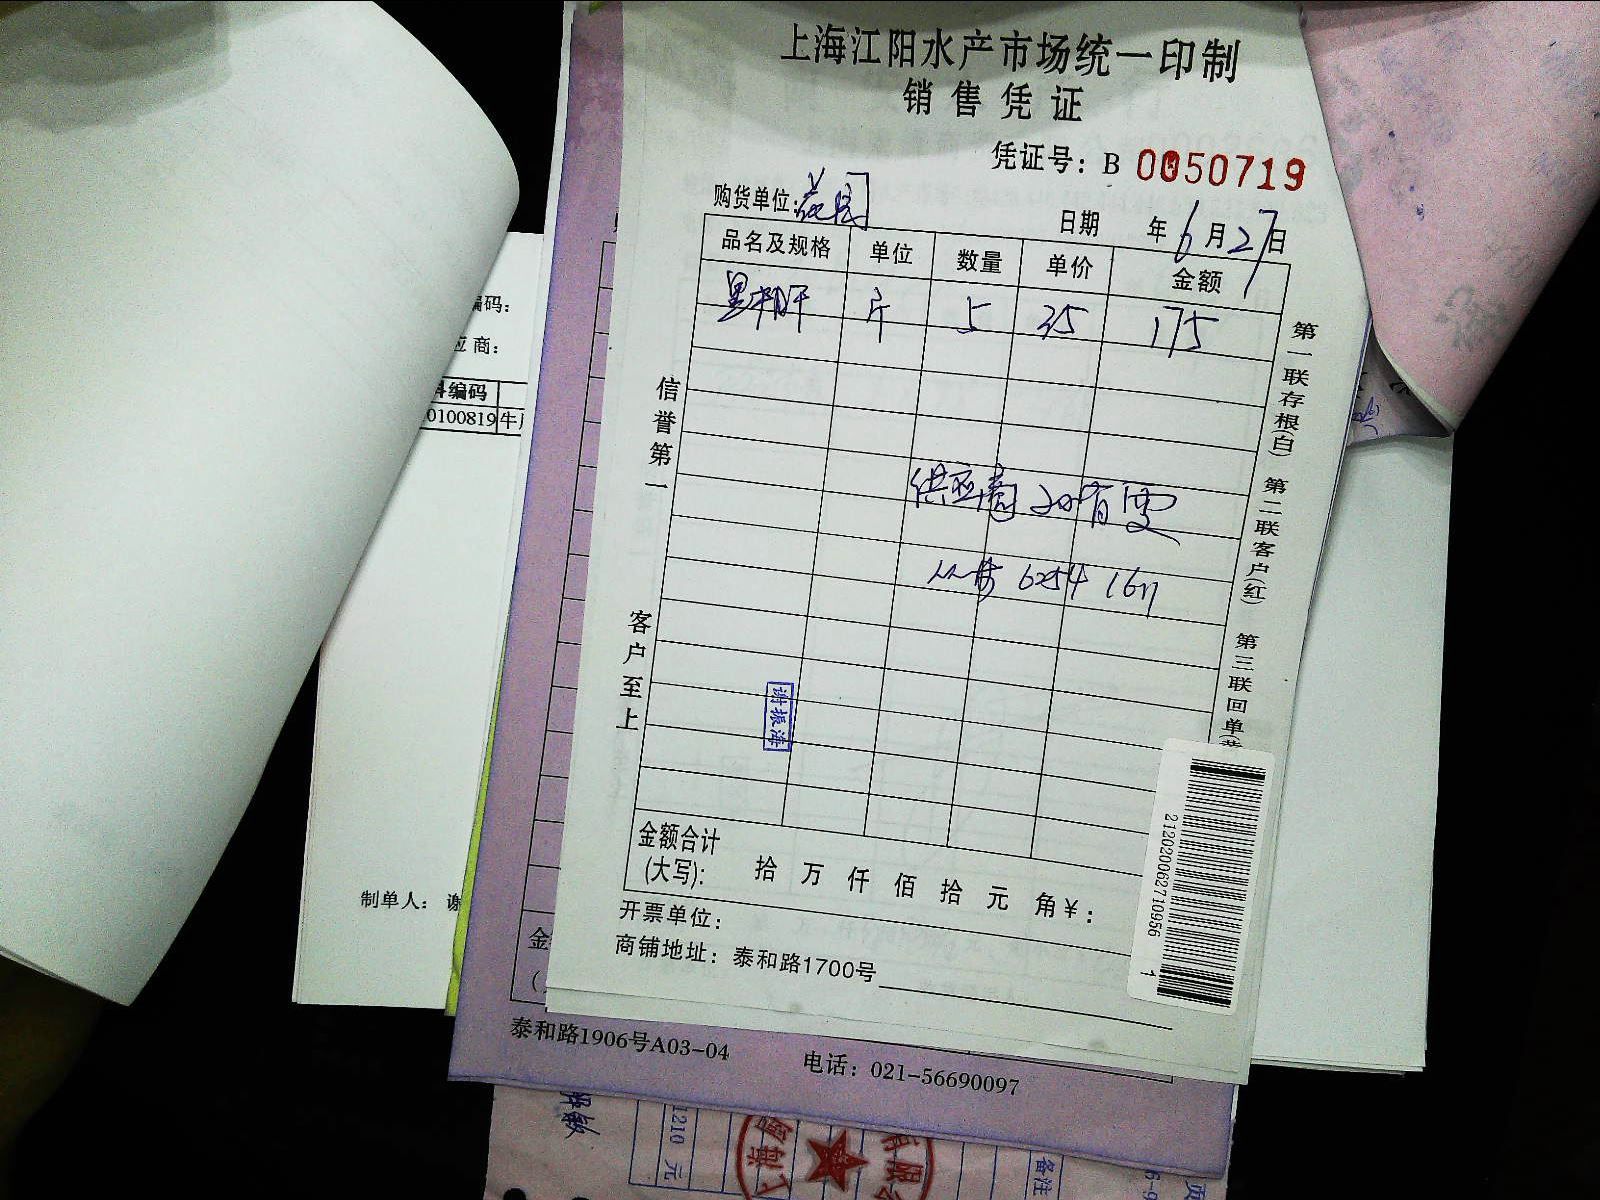 上海江阳水产市场统一印制
销售凭证
凭证号：B 0050719
购货单位：花园
日期 年6月27日
品名及规格 单位 数量 单价 金额
斤 5 35 175
供应商
6254 1611
信誉第一
客户至上
第一联存根(白) 第二联客户(红) 第三联回单
谢振海
金额合计
(大写)： 拾 万 仟 佰 拾 元 角¥：
开票单位：
商铺地址：泰和路1700号
2120200627109561
编码：
应商：
编码
0100819 牛
制单人： 谢
金
泰和路1906号A03-04 电话：021-56690097
1210 元
备注